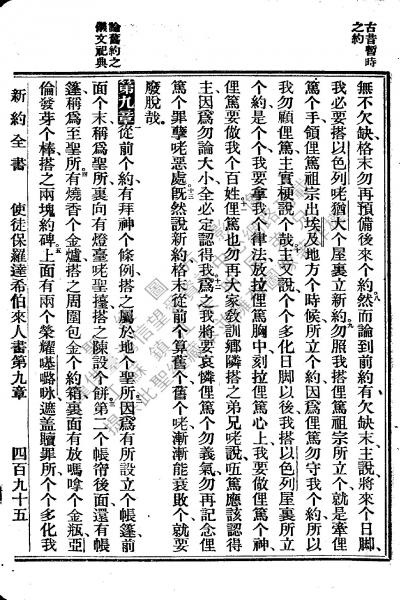 古昔暫時
之約
論舊約之
儀文祀典
無不欠缺格末勿再預備後來个約然而論到前約有欠缺末主說將來个日脚
我必要搭以色列咾猶大个屋裏立新約勿照我搭俚篤祖宗所立个約就是牽俚
篤个手領俚篤祖宗出埃及地方个時候所立个約因爲俚篤勿守我个約所以
我勿顧俚篤主實梗說个哉主又說个个多化日脚以後我搭以色列屋裏所立
个約是个个我要拿我个律法放拉俚篤胸中刻拉俚篤心上我要做俚篤个神
俚篤要做我个百姓俚篤也勿再大家敎訓鄉隣搭之弟兄咾說伍篤應該認得
主因爲勿論大小全必定認得我爲之我將要哀憐俚篤个勿義氣勿再記念俚
篤个罪孽咾惡處旣然說新約格末從前个算舊个舊个咾漸漸能衰敗个就要
廢脫哉
第九章從前个約有拜神个條例搭之屬於地个聖所因爲有所設立个帳篷前
面个末稱爲聖所裏向有燈臺咾聖擡搭之陳設个餠第二个帳帘後面還有帳
篷稱爲至聖所有燒香个金爐搭之周圍包金个約箱裏面有放嗎嗱个金瓶亞
倫發芽个棒搭之兩塊約碑上面有兩个榮耀𠼻嚕㕸遮蓋贖罪所个个多化我
新約全書
使徒保羅達希伯來人書第九章
四百九十五